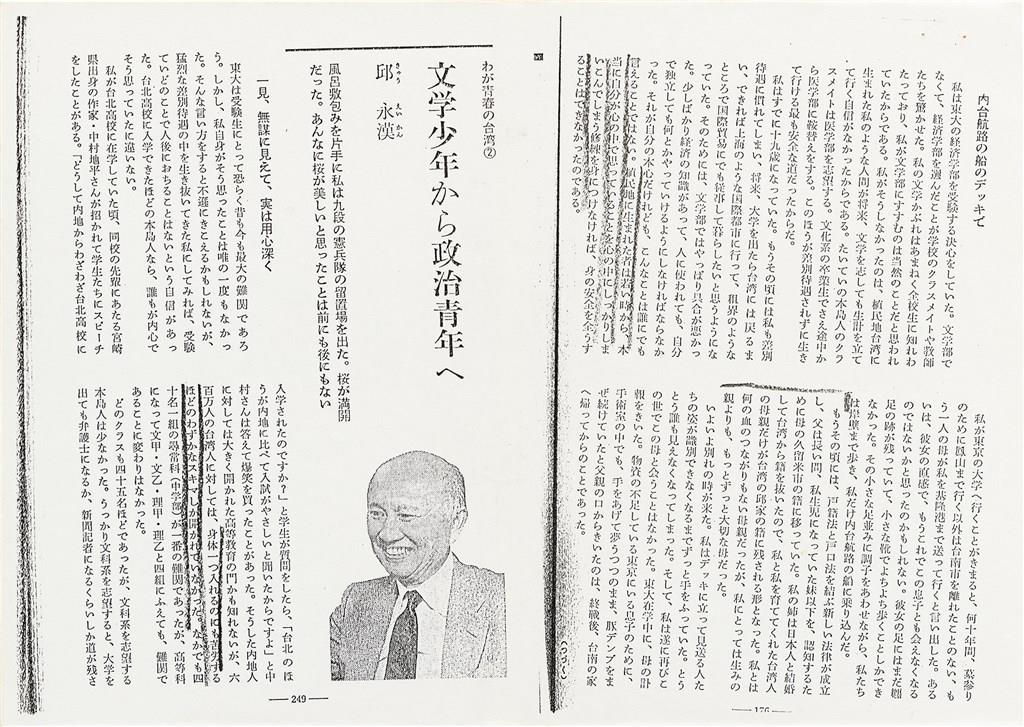 内台航路の船のデッキで
私は東大の経済学部を受験する決心をしていた。文学部で
なくて、経済学部を選んだことが学校のクラスメイトや教師
たちを驚かせた。私の文学かぶれはあまねく全校生に知れわ
たっており、私が文学部にすすむのは当然のことだと思われ
ていたからである。私がそうしなかったのは、植民地台湾に
生まれた私のような人間が将来、文学を志しても生計を立て
て行く自信がなかったからである。たいていの本島人のクラ
スメイトは医学部を志望する。文化系の卒業生でさえ途中か
ら医学部に鞍替えをする。このほうが差別待遇されずに生き
て行ける最も安全な道だったからだ。
私はすでに十九歳になっていた。もうその頃には私も差別
待遇に慣れてしまい、将来、大学を出たら台湾には戻るま
い、できれば上海のような国際都市に行って、租界のような
ところで国際貿易にでも従事して暮らしたいと思うようにな
っていた。そのためには、文学部ではやっぱり具合が悪かっ
た。少しばかり経済の知識があって、人に使われても、自分
で独立しても何とかやっていけるようにしなければならなか
った。それが自分の本心だけれども、こんなことは誰にでも
言えることではない。植民地に生まれた者は若い時から、本
当に自分が心の中で思っていることを心の中にしっかりしま
いこんでしまう修練を身につけなければ、身の安全を全うす
ることはできなかったのである。
私が東京の大学へ行くことがきまると、何十年間、墓参り
のために鳳山まで行く以外は台南市を離れたことのない、も
う一人の母が私を基隆港まで送って行くと言い出した。ある
いは、彼女の直感で、もうこれでこの息子とも会えなくなる
のではないかと思ったのかもしれない。彼女の足にはまだ纏
足の跡が残っていて、小さな靴でよちよち歩くことしかでき
なかった。その小さな足並みに調子をあわせながら、私たち
は岸壁まで歩き、私だけ内台航路の船に乗り込んだ。
もうその頃には、戸籍法と戸口法を結ぶ新しい法律が成立
し、父は長い間、私生児になっていた妹以下を、認知するた
めに母の久留米市の籍に移っていた。私の姉は日本人と結婚
する方から籍を抜いたので、私と私を育ててくれた台湾人
の母親だけが台湾の邱家の籍に残される形となった。私とは
何の血のつながりもない母親だったが、私にとっては生みの
親よりも、もっとずっと大切な母だった。
いよいよ別れの時が来た。私はデッキに立って見送る人た
ちの姿が識別できなくなるまでずっと手をふっていた。とう
とう誰も見えなくなってしまった。そして、私は遂に再びこ
の世でこの母と会うことはなかった。東大在学中に、母の訃
報をきいた。物資の不足している東京にいる息子のために、
手術室の中でも、手をあげて夢うつつのまま、豚デンブをま
ぜ続けていたと父親の口からきいたのは、終戦後、台南の家
へ帰ってからのことであった。
(つづく)
— 176 —
わが青春の台湾②
文学少年から政治青年へ
邱 永漢
きゅう えいかん
風呂敷包みを片手に私は九段の憲兵隊の留置場を出た。桜が満開
だった。あんなに桜が美しいと思ったことは前にも後にもない
一見、無謀に見えて、実は用心深く
東大は受験生にとって恐らく昔も今も最大の難関であろ
う。しかし、私自身がそう思ったことは唯の一度もなかっ
た。そんな言い方をすると不遜にきこえるかもしれないが、
猛烈な差別待遇の中を生き抜いてきた私にしてみれば、受験
ていどのことで人後におちることはないという自信があっ
た。台北高校に入学できたほどの本島人なら、誰もが内心で
そう思っていたに違いない。
私が台北高校に在学していた頃、同校の先輩にあたる宮崎
県出身の作家・中村地平さんが招かれて学生たちにスピーチ
をしたことがある。「どうして内地からわざわざ台北高校に
入学されたのですか?」と学生が質問をしたら、「台北のほ
うが内地に比べて入試がやさしいと聞いたからですよ」と中
村さんは答えて爆笑を買ったことがあった。そうした内地人
に対しては大きく開かれた高等教育の門かも知れないが、六
百万人の台湾人に対しては、身体一つ入れるのにも苦労する
ほどのわずかなスキマしか開かれていなかった。なかでも四
十名一組の尋常科(中学部)が一番の難関であったが、高等科
になって文甲・文乙・理甲・理乙と四組にふえても、難関で
あることに変わりはなかった。
どのクラスも四十五名ほどであったが、文科系を志望する
本島人は少なかった。うっかり文科系を志望すると、大学を
出ても弁護士になるか、新聞記者になるくらいしか道が残さ
— 249 —